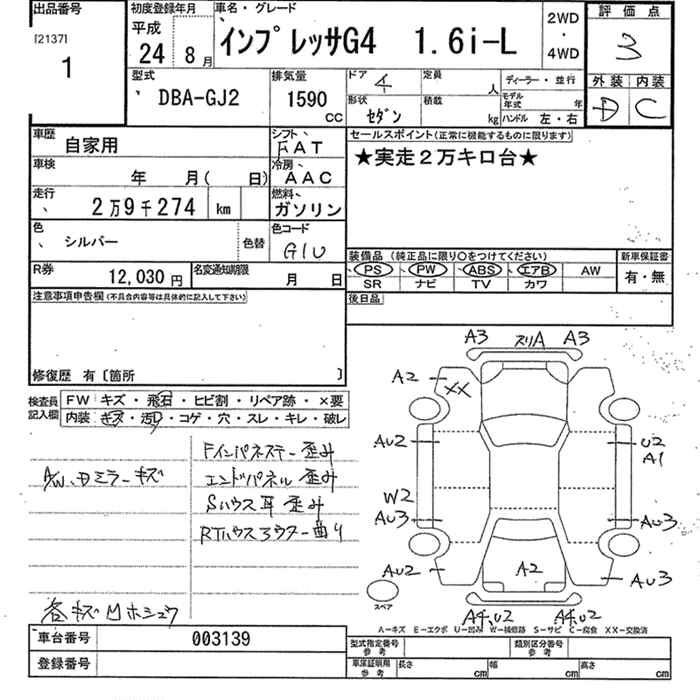 出品番号
[2137]
1
初度登録年月
平成
24 8月
車名・グレード
インプレッサG4 1.6i-L
2WD
・
4WD
評価点
3
外装 内装
D C
型式
DBA-GJ2
排気量
1590 CC
ドア 4
形状 セダン
定員 人
積載 kg
ディーラー・並行
モデル年式 年
ハンドル 左・右
車歴 自家用
シフト、
FAT
車検 年 月( 日)
冷房、
AAC
走行、
2万9千274 km
燃料、
ガソリン
色、
シルバー
色替
色コード
G1U
R券 12,030円
名変通知期限 月 日
セールスポイント(正常に機能するものに限ります)
★実走2万キロ台★
装備品 (純正品に限り○をつけてください)
PS PW ABS エアB AW
SR ナビ TV カワ
新車保証書
有・無
後日品
注意事項申告欄(不具合内容等は具体的に記入して下さい)
修復歴 有〔箇所 〕
検査員記入欄
FW キズ・飛石・ヒビ割・リペア跡・×要
内装・キズ・汚レ・コゲ・穴・スレ・キレ・破レ
Fインパネステー歪み
A/W、Dミラーキズ
エンドパネル歪み
Sハウス耳歪み
RTハウスアウター曲り
各キズMホシュウ
A3 スリA A3
A2 XX
AU2
U2
A1
W2
AU3
AU3
AU2
A2
AU3
A4,U2 A4,U2
スペア
A-キズ E-エクボ U-凹み W-補修跡 S-サビ C-腐食 XX-交換済
車台番号 003139
登録番号
型式指定番号 参考
類別区分番号 参考
車庫証明用 参考 長さ cm 幅 cm 高さ cm